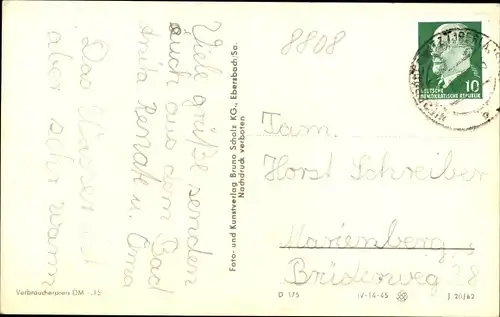 Viele grüße senden
auch aus dem Bad
Anita Renate u. Oma
Das Wasser ist
aber sehr warm
Verbraucherpreis DM -,15
Foto- und Kunstverlag Bruno Scholz KG., Ebersbach/Sa.
Nachdruck verboten
8808
10
DEUTSCHE
DEMOKRATISCHE REPUBLIK
Fam.
Horst Schreiber
Marienberg
Brüderweg 28
D 175 IV-14-45 J 20/62